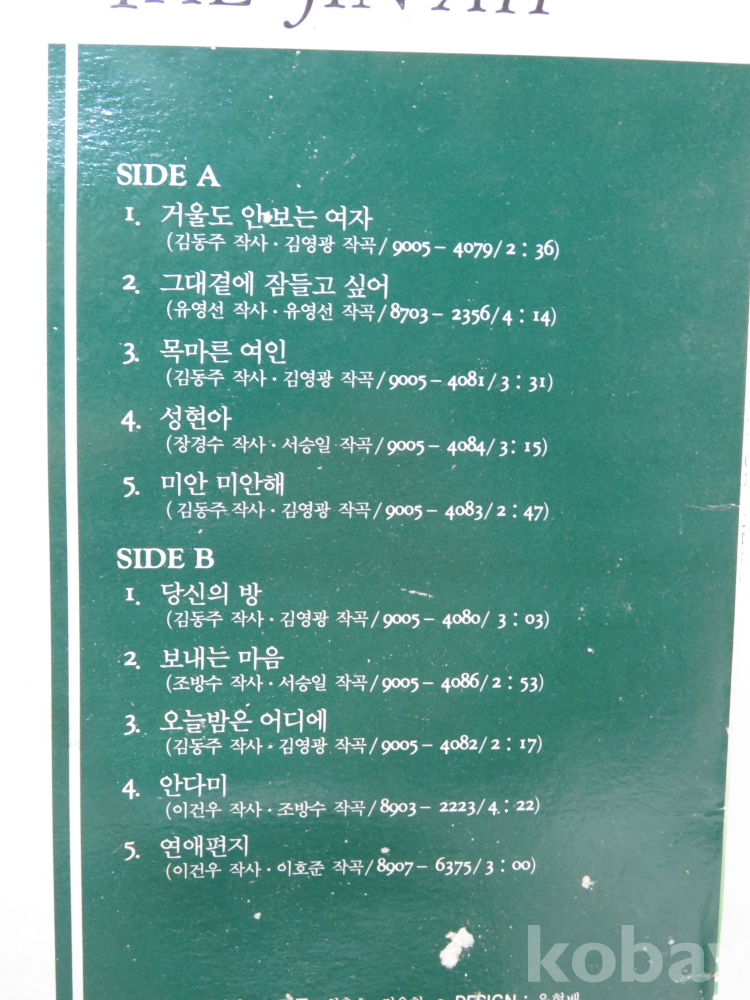 TAE JIN AH
SIDE A
1. 거울도 안보는 여자
(김동주 작사·김영광 작곡/9005-4079/2:36)
2. 그대곁에 잠들고 싶어
(유영선 작사·유영선 작곡/8703-2356/4:14)
3. 목마른 여인
(김동주 작사·김영광 작곡/9005-4081/3:31)
4. 성현아
(장경수 작사·서승일 작곡/9005-4084/3:15)
5. 미안 미안해
(김동주 작사·김영광 작곡/9005-4083/2:47)
SIDE B
1. 당신의 방
(김동주 작사·김영광 작곡/9005-4080/3:03)
2. 보내는 마음
(조방수 작사·서승일 작곡/9005-4086/2:53)
3. 오늘밤은 어디에
(김동주 작사·김영광 작곡/9005-4082/2:17)
4. 안다미
(이건우 작사·조방수 작곡/8903-2223/4:22)
5. 연애편지
(이건우 작사·이호준 작곡/8907-6375/3:00)
DESIGN :
koba